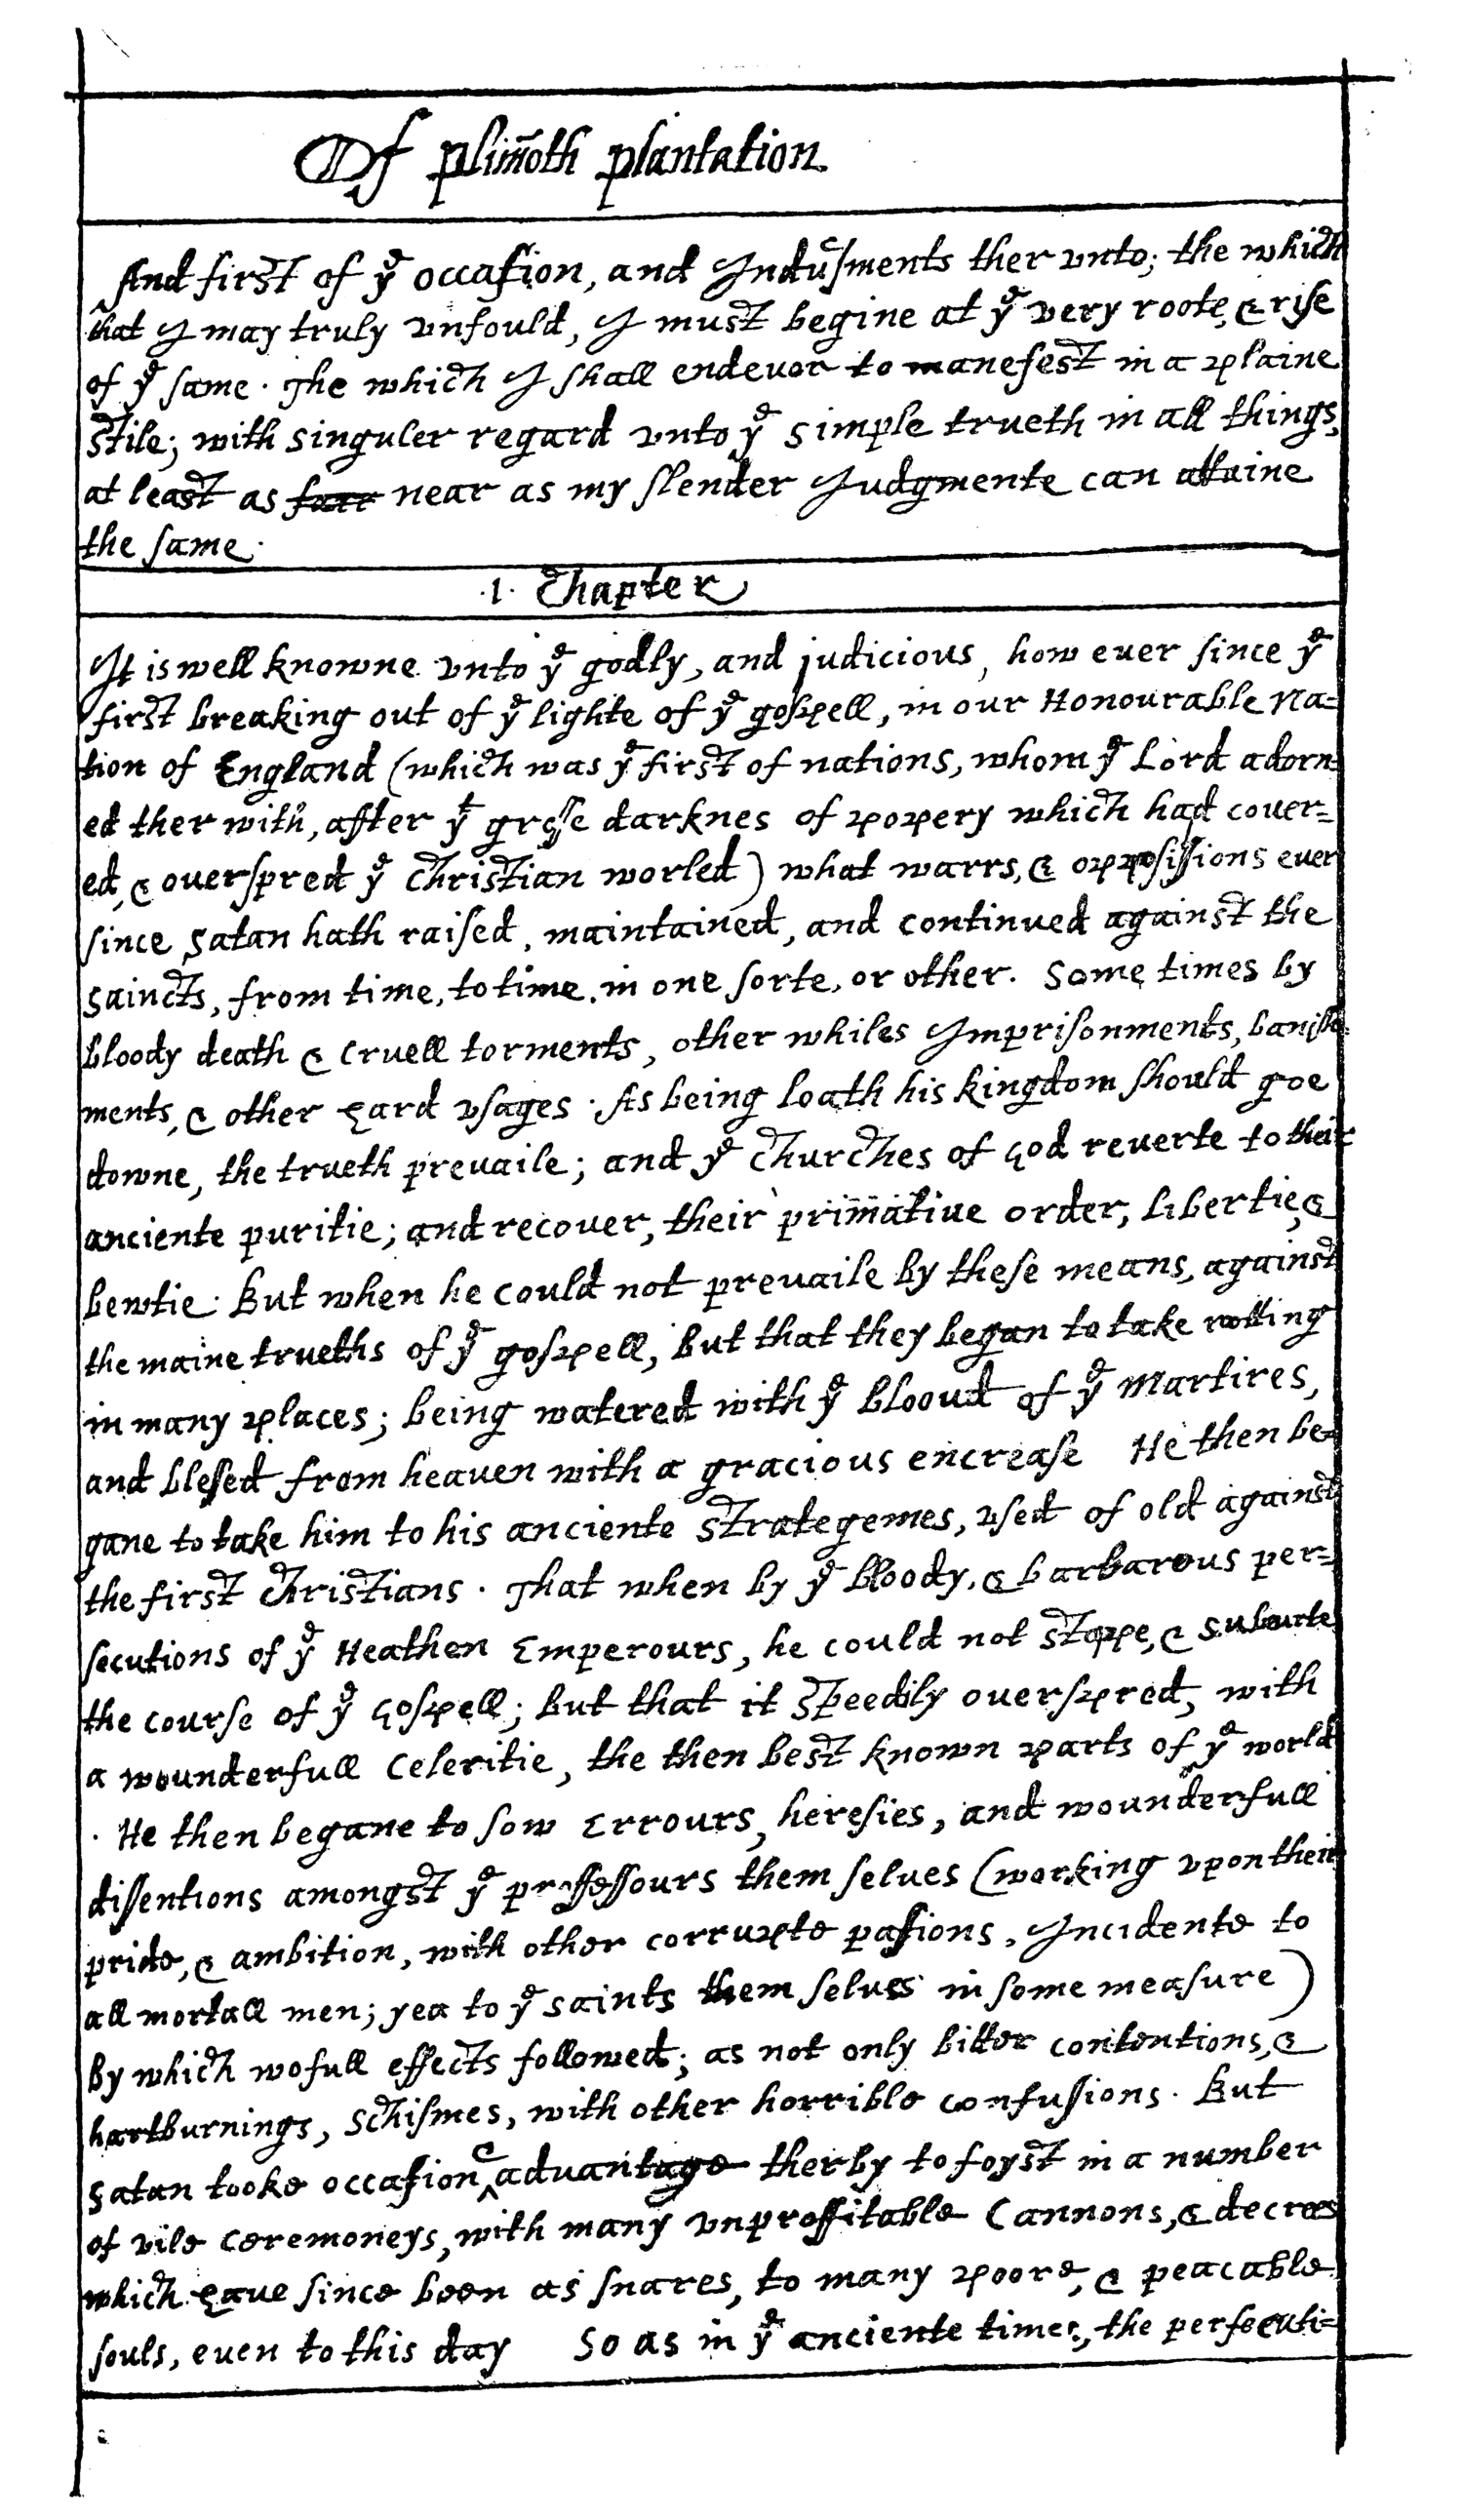 Of plim̄oth plantation
And first of yᵉ occasion, and Indusments ther vnto; the which
that I may truly vnfould, I must begine at yᵉ very roote, & rise
of yᵉ same. The which I shall endeuor to manefest in a plaine
stile; with singuler regard vnto yᵉ simple trueth in all things,
at least as near as my slender Judgmente can attaine
the same.
.1. Chapter
It is well knowne vnto yᵉ godly, and judicious, how euer since yᵉ
first breaking out of yᵉ lighte of yᵉ gospell, in our Honourable Na=
tion of England (which was yᵉ first of nations, whom yᵉ Lord adorn=
ed ther with, after yᵗ grosse darknes of popery which had couer=
ed, & ouerspred yᵉ Christian worled) what warrs, & oppossissions euer
since Satan hath raised, maintained, and continued against the
Saincts, from time, to time, in one sorte, or other. Some times by
bloody death & cruell torments, other whiles Imprisonments, banish=
ments, & other hard vsages. As being loath his kingdom should goe
downe, the trueth preuaile; and yᵉ Churches of God reuerte to their
anciente puritie; and recouer, their primātiue order, libertie, &
bewtie. But when he could not preuaile by these means, against
the maine trueths of yᵉ gospell, but that they began to take rotting
in many places; being watered with yᵉ blooud of yᵉ Martires,
and blesed from heauen with a gracious encrease He then be=
gane to take him to his anciente strategemes, vsed of old against
the first Christians. That when by yᵉ bloody, & barbarous per=
secutions of yᵉ Heathen Emperours, he could not stoppe, & subuerte
the course of yᵉ Gospell; but that it speedily ouerspred, with
a wounderfull celeritie, the then best known parts of yᵉ world
. He then begane to sow Errours, heresies, and wounderfull
dissentions amongst yᵉ professours them selues (working vpon their
pride, & ambition, with other corrupte passions, Incidente to
all mortall men; yea to yᵉ saints them selues in some measure)
By which wofull effects followed; as not only bitter contentions, &
hartburnings, schismes, with other horrible confusions. But
Satan tooke occasion & aduantage therby to foyst in a number
of vile ceremoneys, with many vnproffitable Cannons, & decrees
which haue since been as snares, to many poore, & peacable
souls, euen to this day So as in yᵉ anciente times, the persecuti=